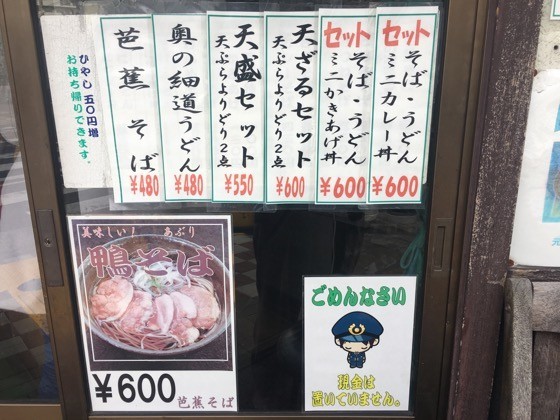 セット
そば・うどん
ミニカレー丼
¥600
セット
そば・うどん
ミニかきあげ丼
¥600
天ざるセット
天ぷらよりどり2点
¥600
天盛セット
天ぷらよりどり2点
¥550
奥の細道うどん
¥480
芭蕉そば
¥480
ひやし五〇円増
お持ち帰りできます。
美味しい! あぶり
鴨そば
¥600
芭蕉そば
ごめんなさい
現金は
置いていません。